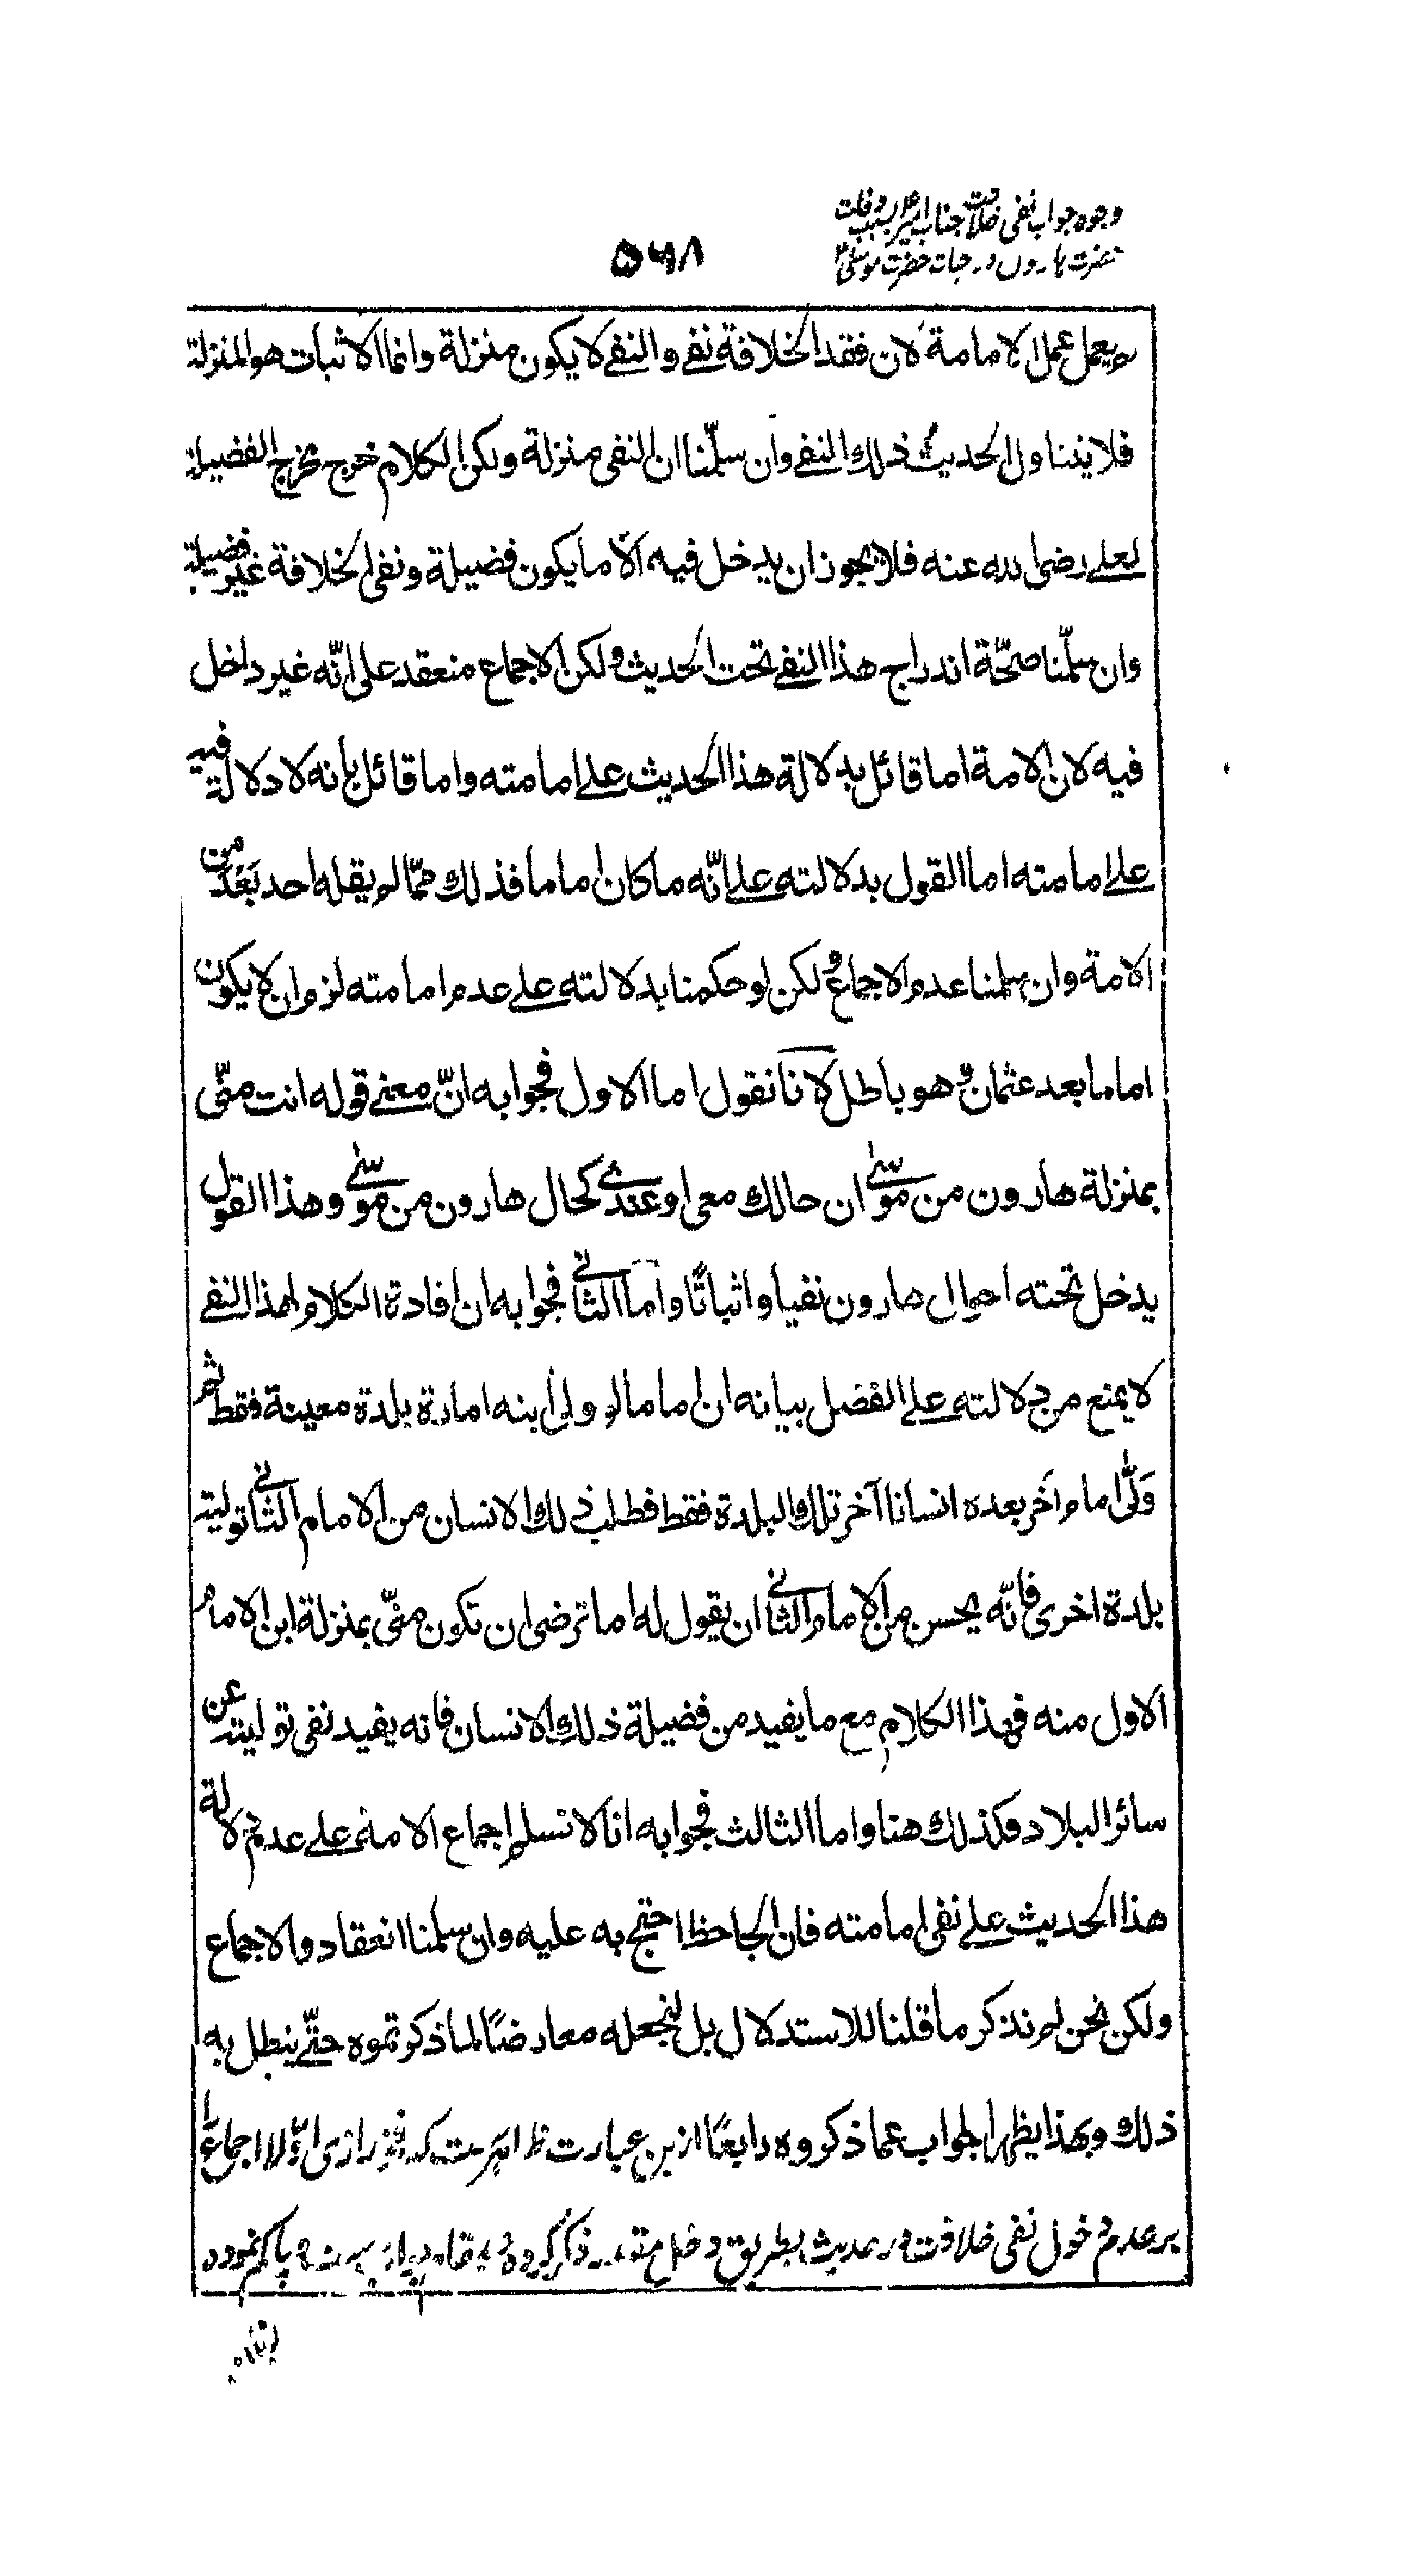 وجوه جواب نفی خلافت جناب امیر بسبب وفات
حضرت هارون در حیات حضرت موسی
۵۶۸
يعمل عمل الامامة لان فقد الخلافة نفے والنفے لا يكون منزلة وانما الاثبات هو المنزلة
فلا يتناول الحديث ذلك النفے وان سلّمنا ان النفى منزلة ولكن الكلام خرج مخرج الفضيلة
لعلے رضى الله عنه فلا يجوز ان يدخل فيه الّا ما يكون فضيلة ونفى الخلافة غير فضيلة
وان سلّمنا صحّة اندراج هذا النفے تحت الحديث ولكن الاجماع منعقد على انّه غير داخل
فيه لان الامة اما قائل بدلالة هذا الحديث علے امامته واما قائل بانه لا دلالة فيه
علے امامته اما القول بدلالته علے انّه ما كان اماما فذلك ممّا لم يقله احد بَعْدُ من
الامة وان سلمنا عدم الاجماع ولكن لو حكمنا بدلالته علے عدم امامته لزم ان لا يكون
اماما بعد عثمان وهو باطل لانا نقول اما الاول فجوابه انّ معنے قوله انت منّى
بمنزلة هارون من موسٰے ان حالك معى او عندے كحال هارون من موسٰے وهذا القول
يدخل تحته احوال هارون نفيا واثباتًا واما الثانے فجوابه ان افادة الكلام لهذا النفے
لا يمنع من دلالته علے الفضل بيانه ان اماما لو ولى ابنه امارة بلدة معينة فقط ثم
وَلّٰى امام آخر بعده انسانا آخر تلك البلدة فقط فطلب ذلك الانسان من الامام الثانے توليته
بلدة اخرى فانّه يحسن من الامام الثانے ان يقول له اما ترضى ان تكون منّى بمنزلة ابن الامام
الاول منه فهذا الكلام مع ما يفيد من فضيلة ذلك الانسان فانه يفيد نفى توليته عن
سائر البلاد فكذلك هنا واما الثالث فجوابه انا لا نسلم اجماع الامة علے عدم دلالة
هذا الحديث علے نفى امامته فان الجاحظ احتج به عليه وان سلمنا انعقاد الاجماع
ولكن نحن لم نذكر ما قلنا للاستدلال بل لنجعله معارضًا لما ذكرتموه حتّے يبطل به
ذلك وبهذا يظهر الجواب عما ذكروه رابعًا ازين عبارت ظاهرست كه فخر رازى اوّلا اجماعًا
بر عدم دخول نفى خلافت در حديث بطريق دخل ذكر كرده نموده